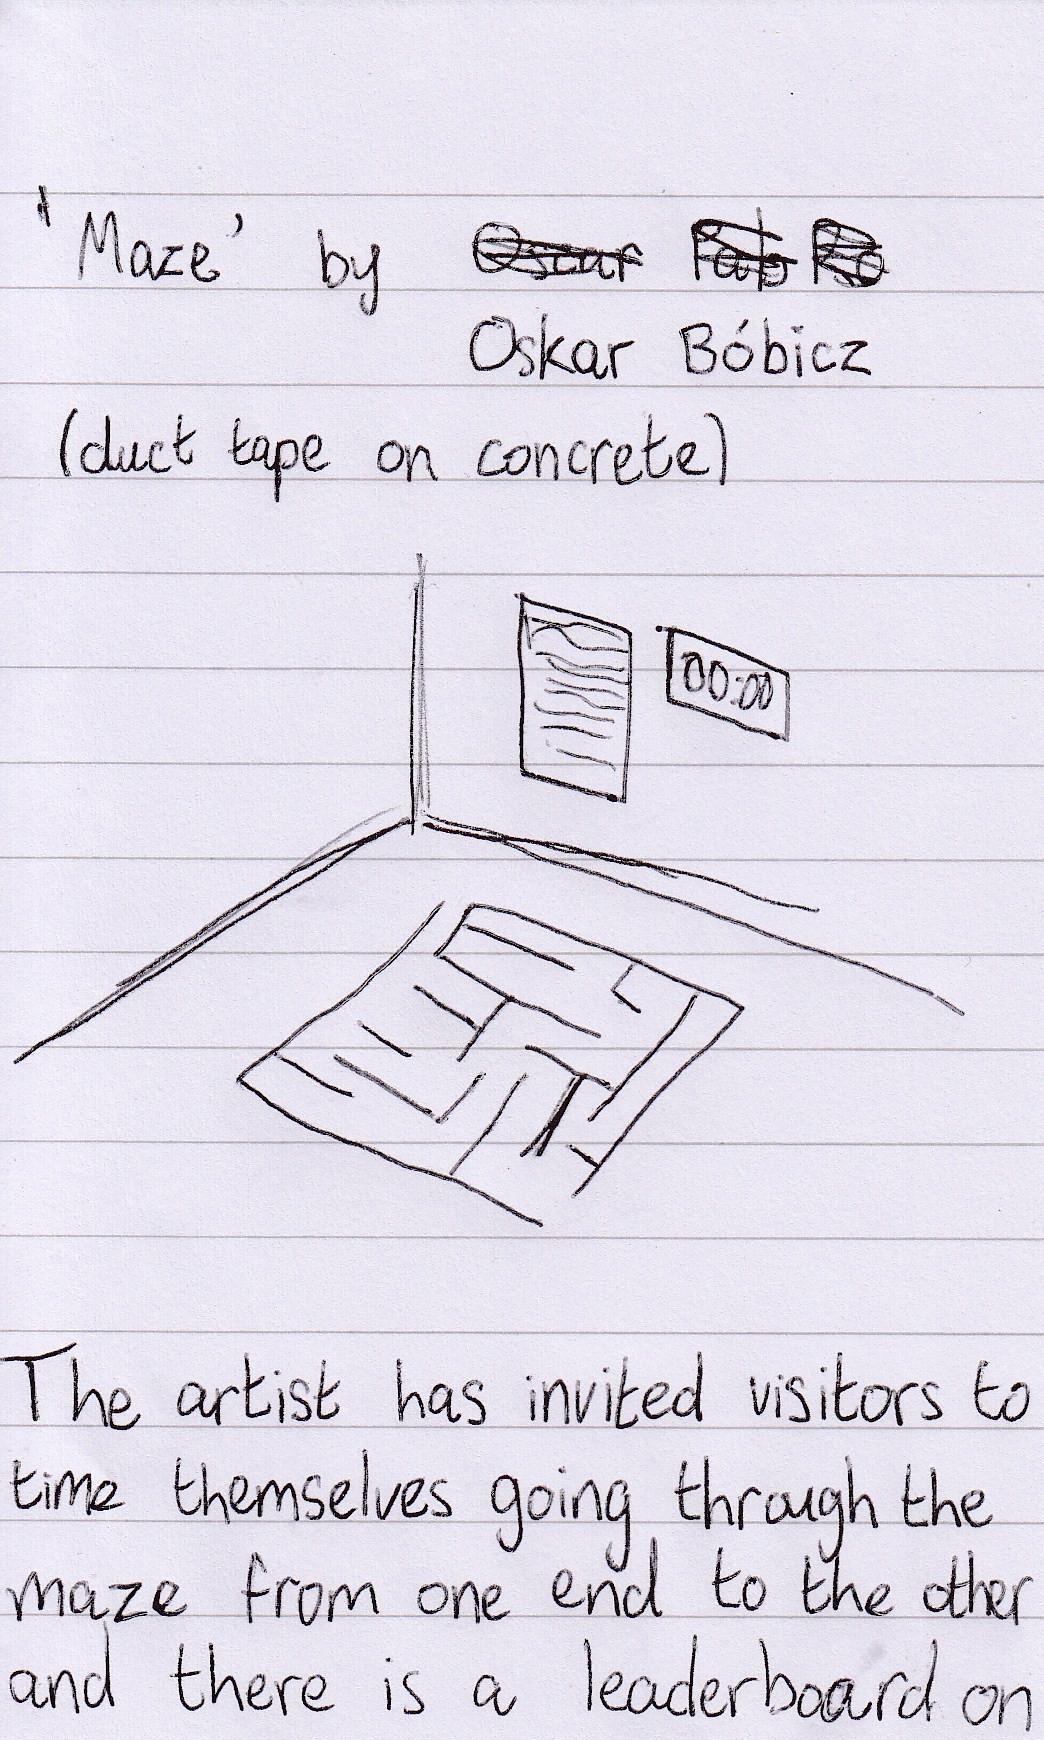 'Maze' by Oscar Pab Ro
Oskar Bóbicz
(duct tape on concrete)
00:00
The artist has invited visitors to
time themselves going through the
maze from one end to the other
and there is a leaderboard on